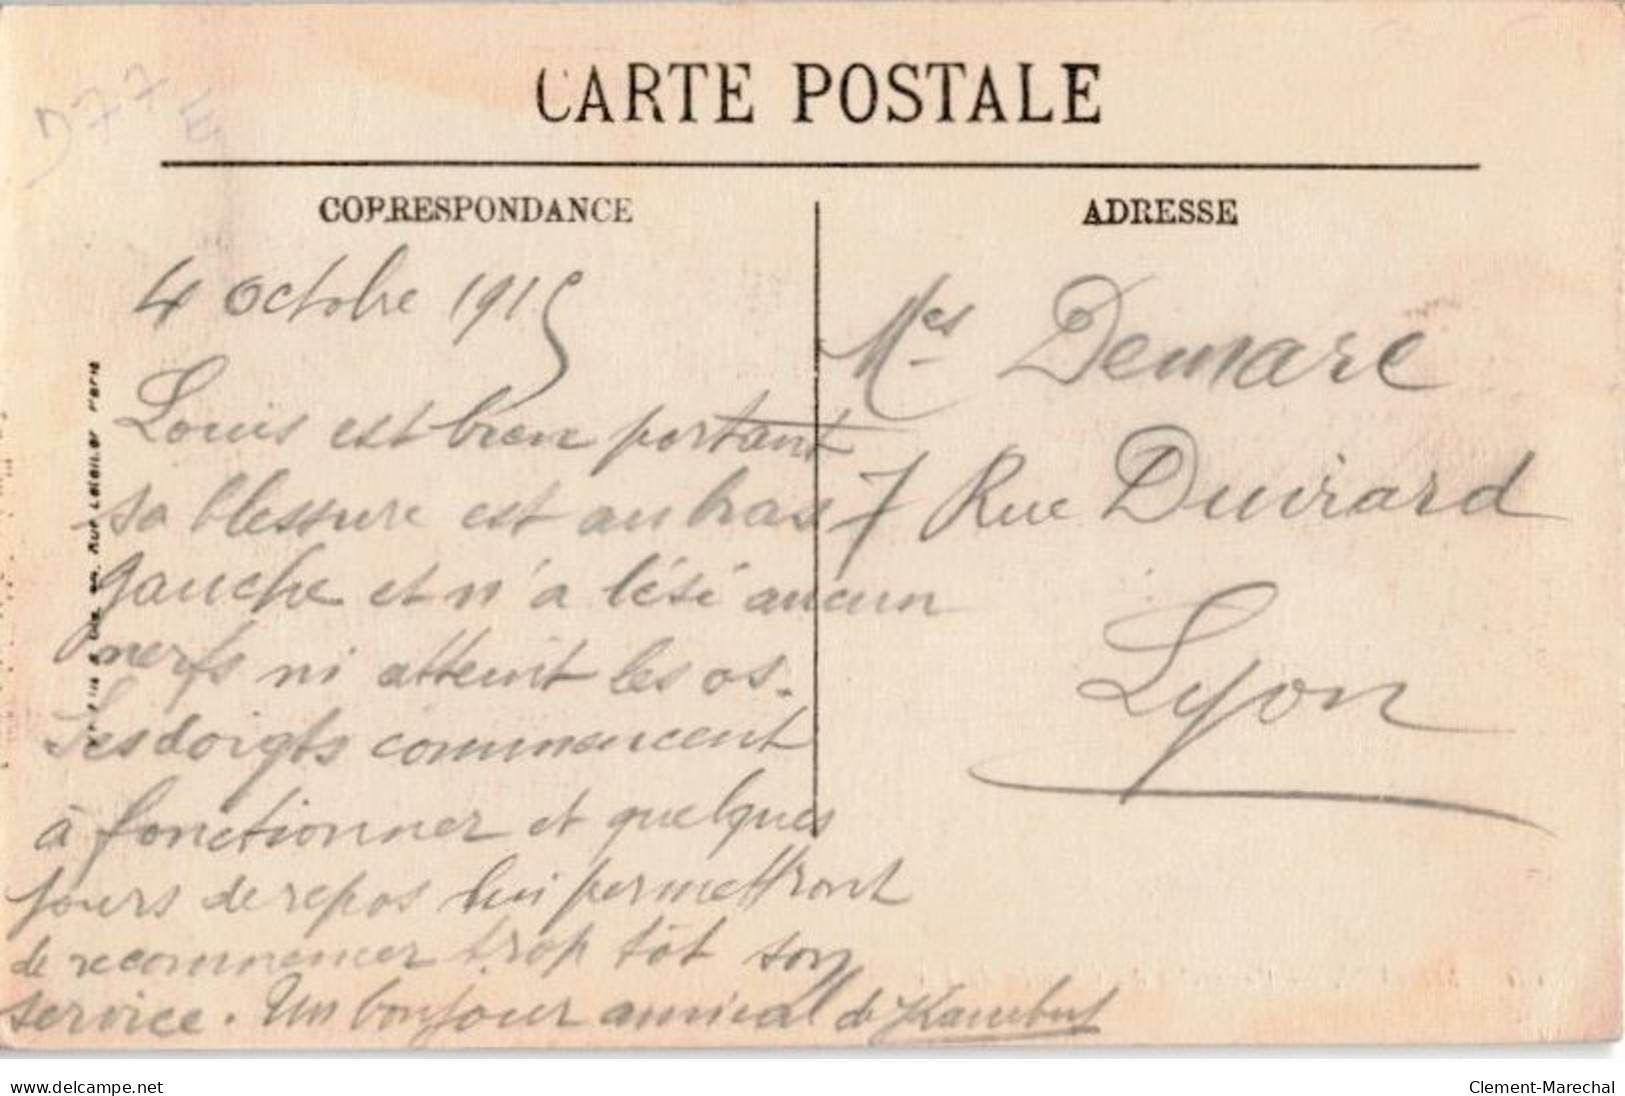 D77 E
CARTE POSTALE
CORRESPONDANCE
4 Octobre 1915
Louis est bien portant
sa blessure est au bras
gauche et n'a lésé aucun
nerfs ni atteint les os.
Ses doigts commencent
à fonctionner et quelques
jours de repos lui permettront
de recommencer trop tôt son
service. Un bonjour amical de
ADRESSE
Mes Demare
7 Rue Duirard
Lyon
www.delcampe.net
Clement-Marechal